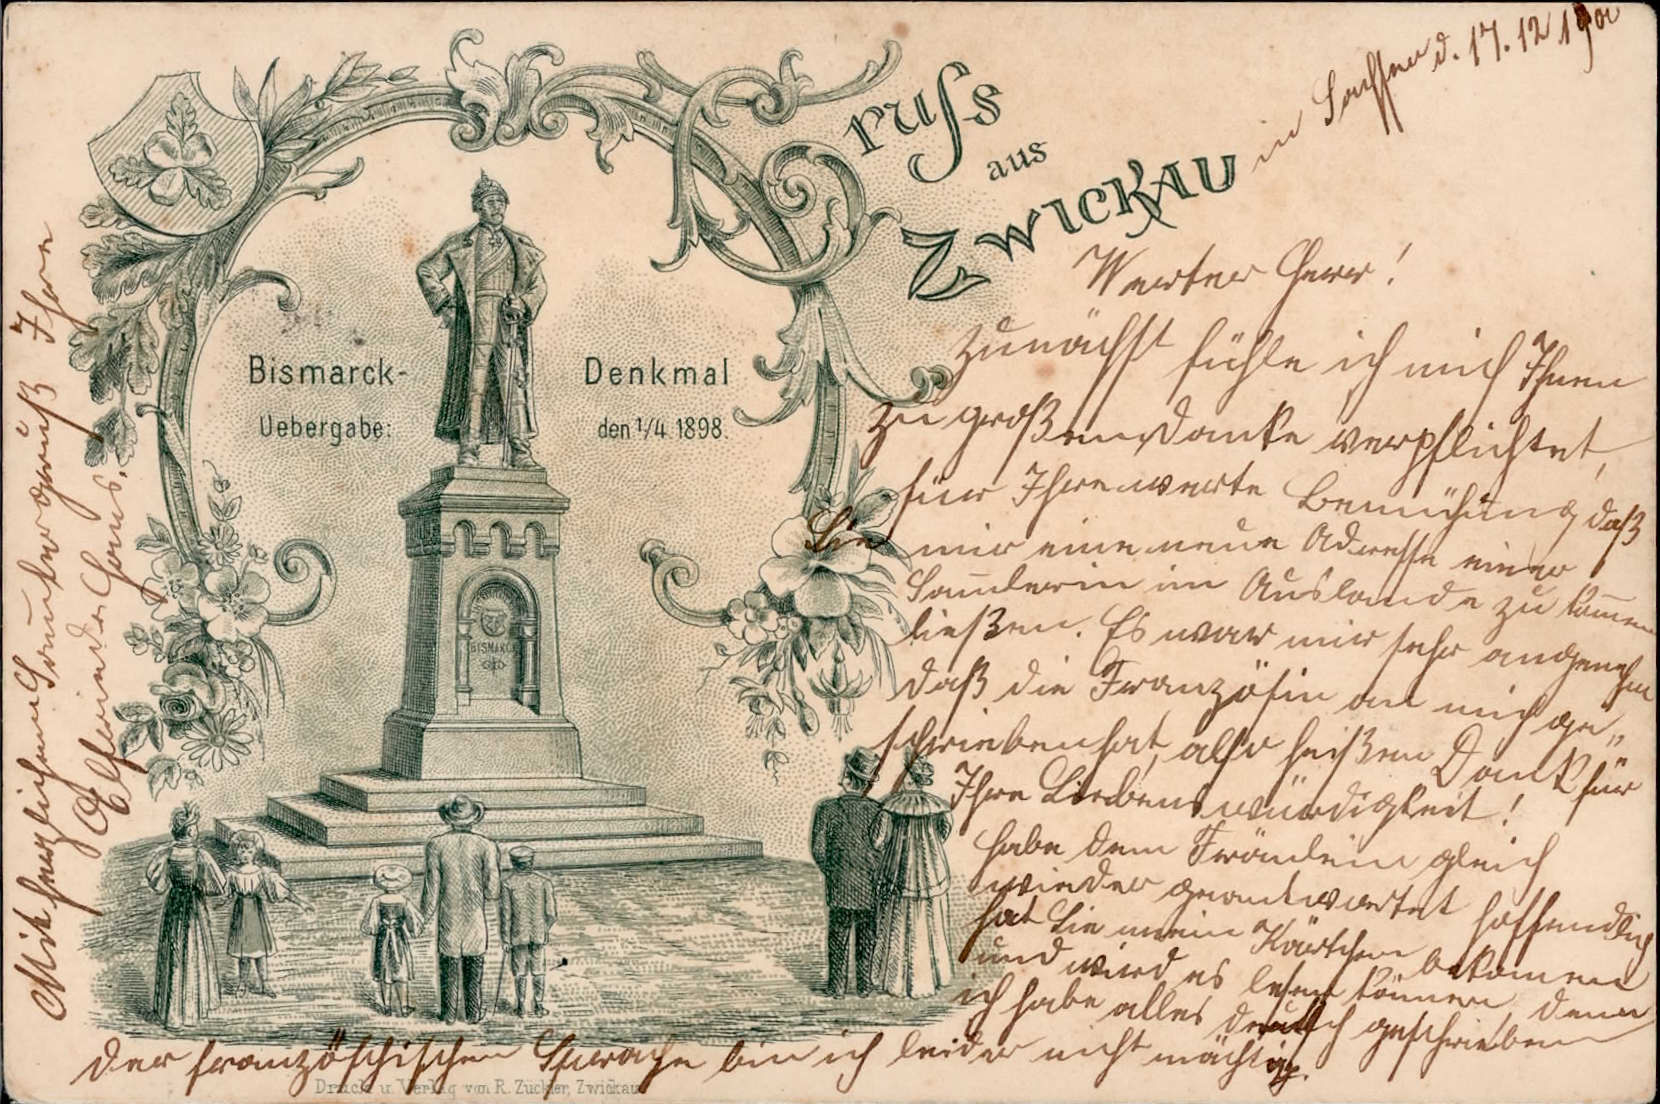 Gruſs
aus
Zwickau
in Sachsen d. 17.12.1900
Bismarck-Denkmal
Uebergabe: den 1/4 1898.
BISMARCK
Werter Herr!
Zunächst fühle ich mich Ihnen
zu großem Danke verpflichtet,
für Ihre werte Bemühung daß
Sie mir eine neue Adresse einer
Sam̄lerin im Auslande zu kom̄en
ließen. Es war mir sehr angenehm
daß die Französin an mich ge„
schrieben hat, also heißen Dank für
Ihre Liebenswürdigkeit!
habe dem Fräulein gleich
wieder geantwortet hoffendlich
hat Sie mein Kärtchen bekomen
und wird es lesen können, denn
ich habe alles deutsch geschrieben
der französchischen Sprache bin ich leider nicht mächtig.
Mit herzlichem Sam̄lergruß Ihre
Druck u. Verlag von R. Zückler, Zwickau